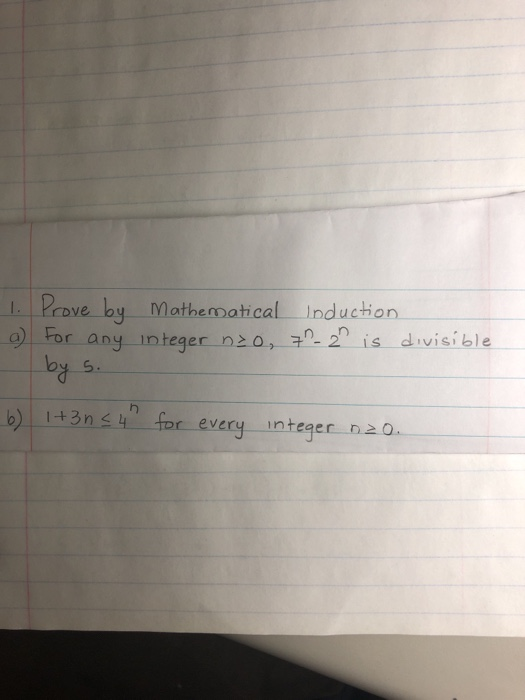 1. Prove by Mathematical Induction
a) For any integer n≥0, 7ⁿ-2ⁿ is divisible
by 5.
b) 1+3n≤4ⁿ for every integer n≥0.